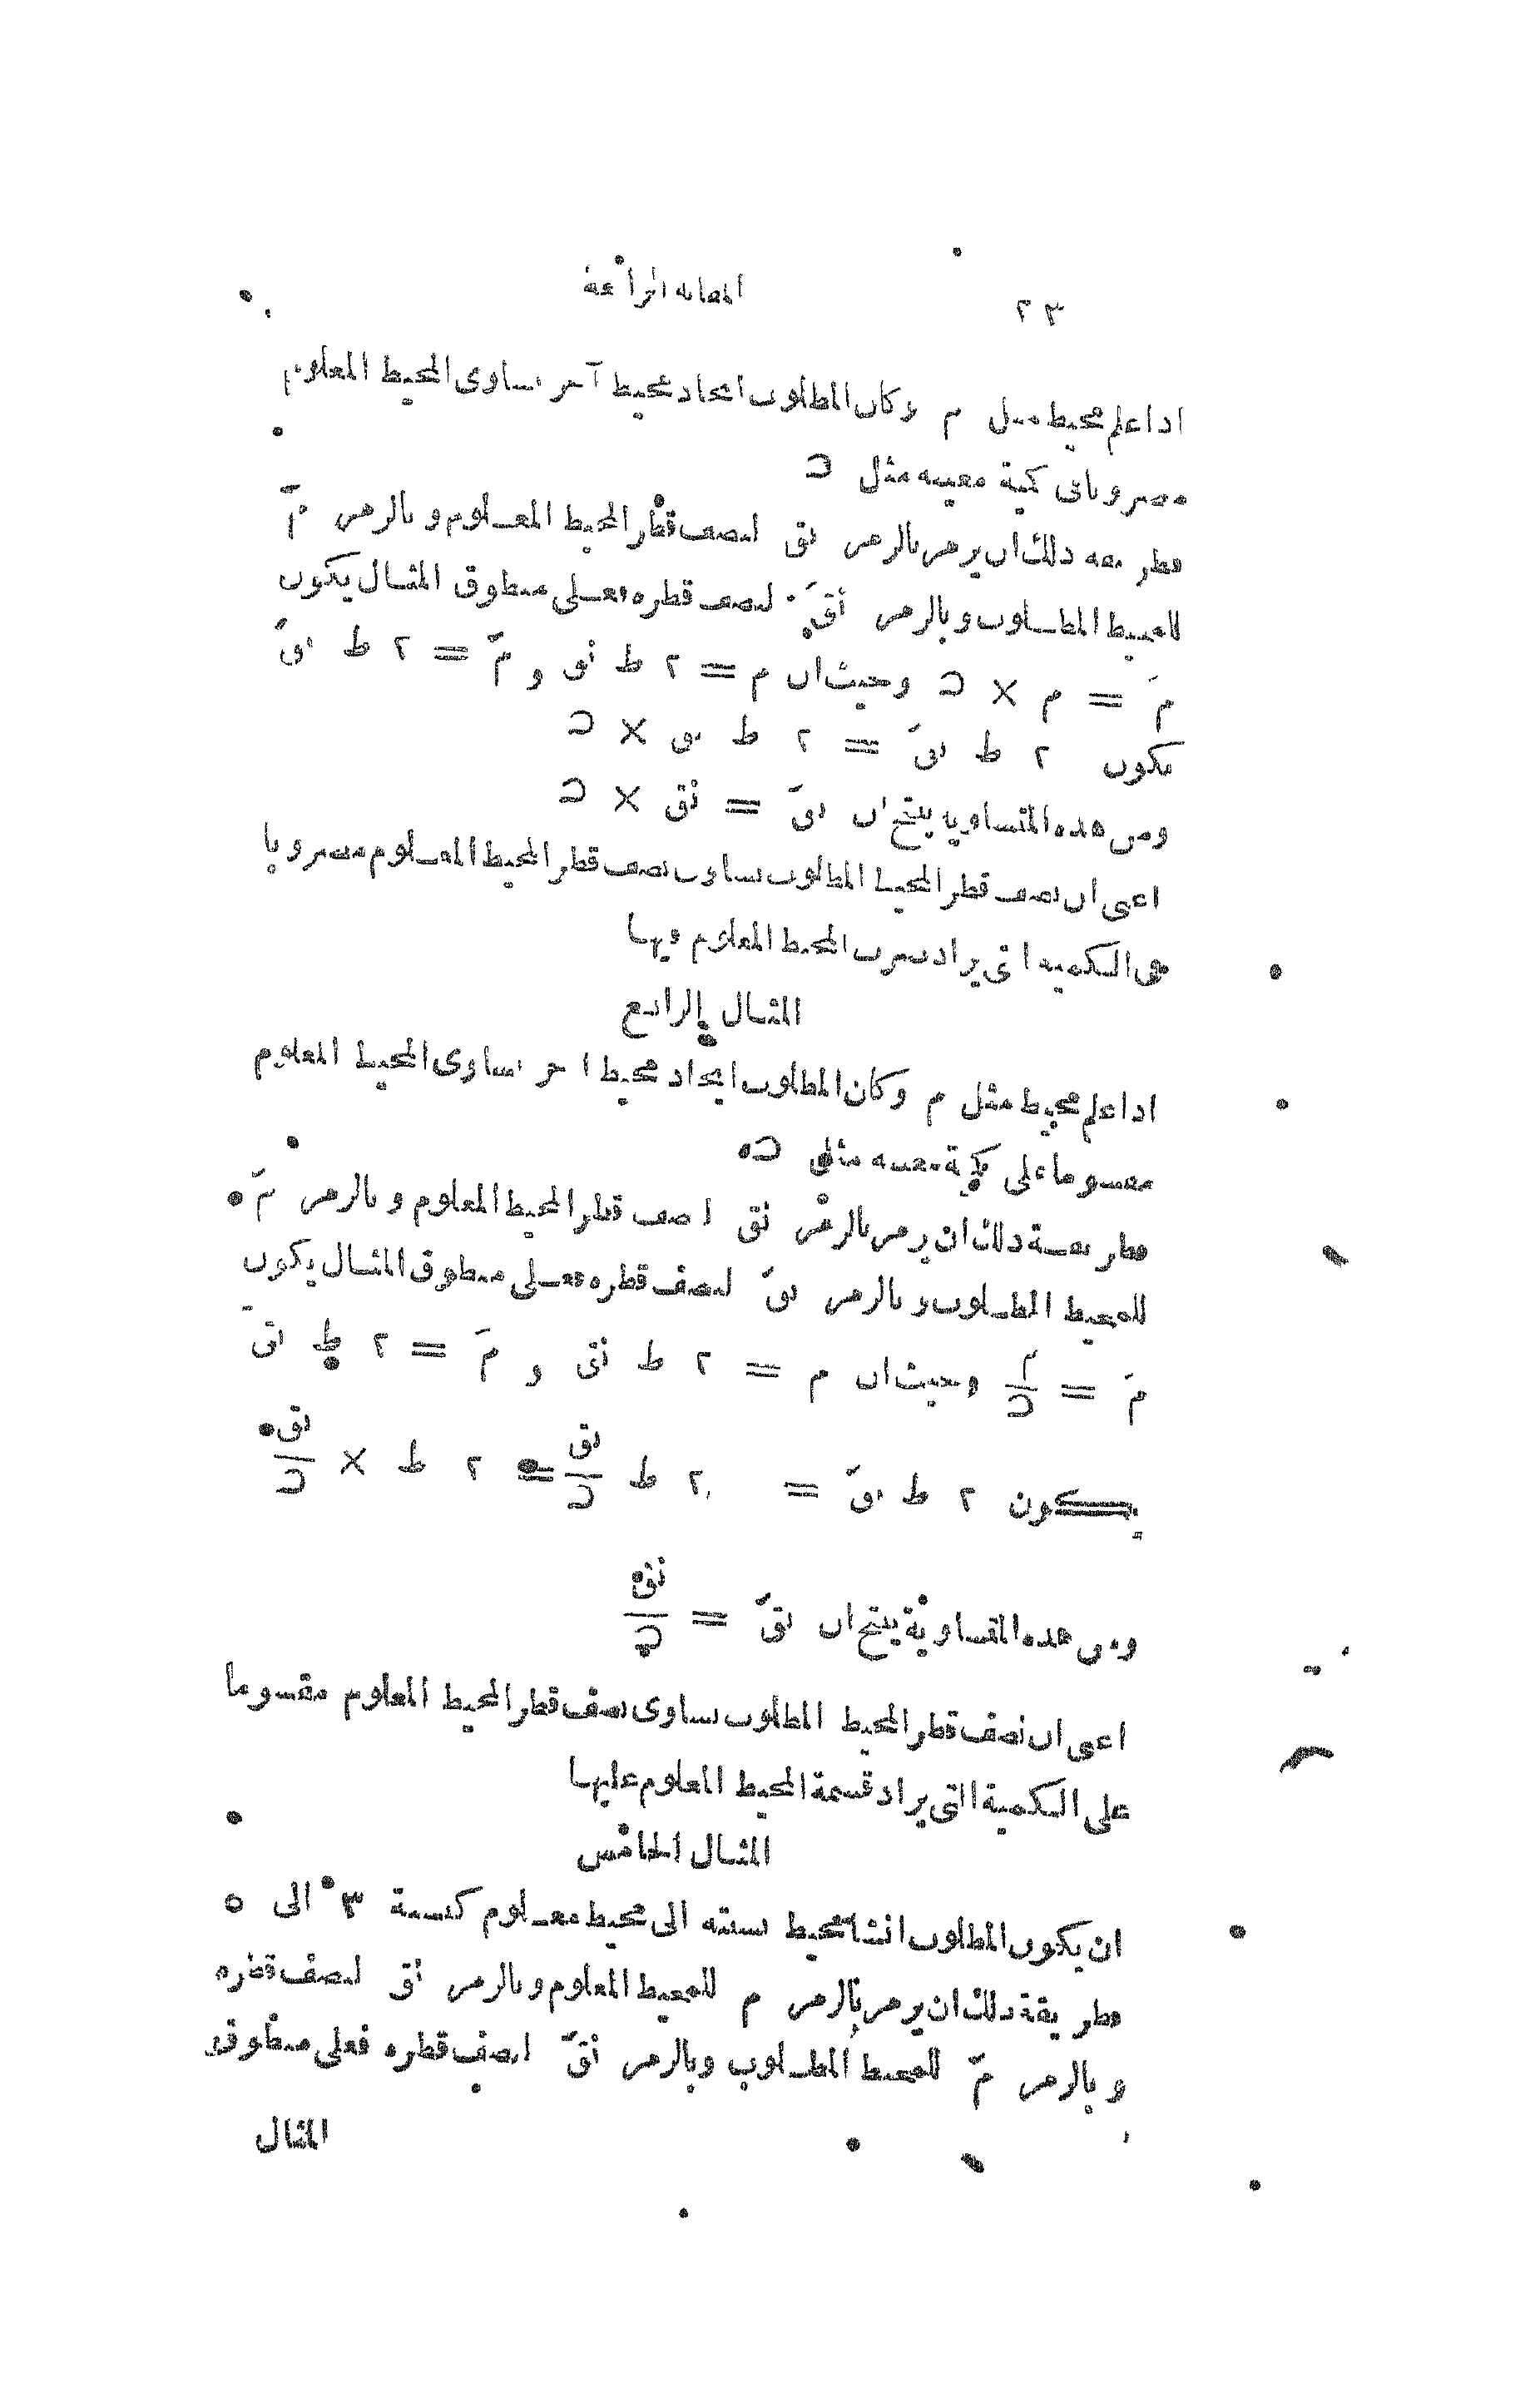 ٢٣ المقالة الرابعة
اذا علم محيط مثل م وكان المطلوب ايجاد محيط آخر يساوى المحيط المعلوم
مضروبا فى كمية معينة مثل د
فطريقة ذلك ان يرمز بالرمز نق لنصف قطر المحيط المعلوم وبالرمز مَ
للمحيط المطلوب وبالرمز نقَ لنصف قطره فعلى منطوق المثال يكون
مَ = م × د وحيث ان م = ٢ ط نق و مَ = ٢ ط نقَ
يكون ٢ ط نقَ = ٢ ط نق × د
ومن هذه المتساوية ينتج ان نقَ = نق × د
اعنى ان نصف قطر المحيط المطلوب يساوى نصف قطر المحيط المعلوم مضروبا
فى الكمية التى يراد ضرب المحيط المعلوم فيها
المثال الرابع
اذا علم محيط مثل م وكان المطلوب ايجاد محيط آخر يساوى المحيط المعلوم
مقسوما على كمية معينة مثل د
فطريقة ذلك ان يرمز بالرمز نق لنصف قطر المحيط المعلوم وبالرمز مَ
للمحيط المطلوب وبالرمز نقَ لنصف قطره فعلى منطوق المثال يكون
مَ = م/د وحيث ان م = ٢ ط نق و مَ = ٢ ط نقَ
يكون ٢ ط نقَ = ٢ ط نق/د = ٢ ط × نق/د
ومن هذه المتساوية ينتج ان نقَ = نق/د
اعنى ان نصف قطر المحيط المطلوب يساوى نصف قطر المحيط المعلوم مقسوما
على الكمية التى يراد قسمة المحيط المعلوم عليها
المثال الخامس
ان يكون المطلوب انشا محيط نسبته الى محيط معلوم كنسبة ٣ الى ٥
فطريقة ذلك ان يرمز بالرمز م للمحيط المعلوم وبالرمز نق لنصف قطره
وبالرمز مَ للمحيط المطلوب وبالرمز نقَ لنصف قطره فعلى منطوق
المثال